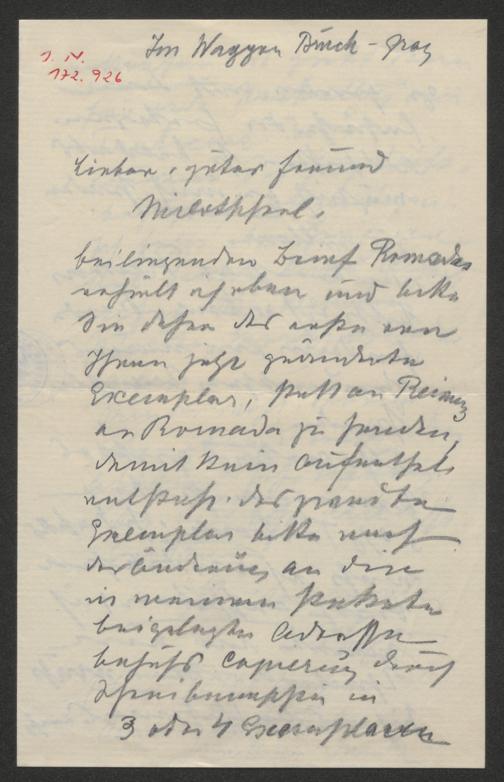 I. N.
172.926
Im Waggon Bruck – Graz
Lieber, guter Freund
beiliegenden Brief Romadas
erhielt ich eben und bitte
Sie daher das erste von
Ihnen jetzt geänderte
Exemplar, statt an
an Romada zu senden,
damit kein Aufenthalt
entsteht. Das zweite
Exemplar bitte nach
der Änderung an die
in meinem Pakete
beigelegte Adresse
behufs Copierung durch
in
3 oder 4 Exemplaren